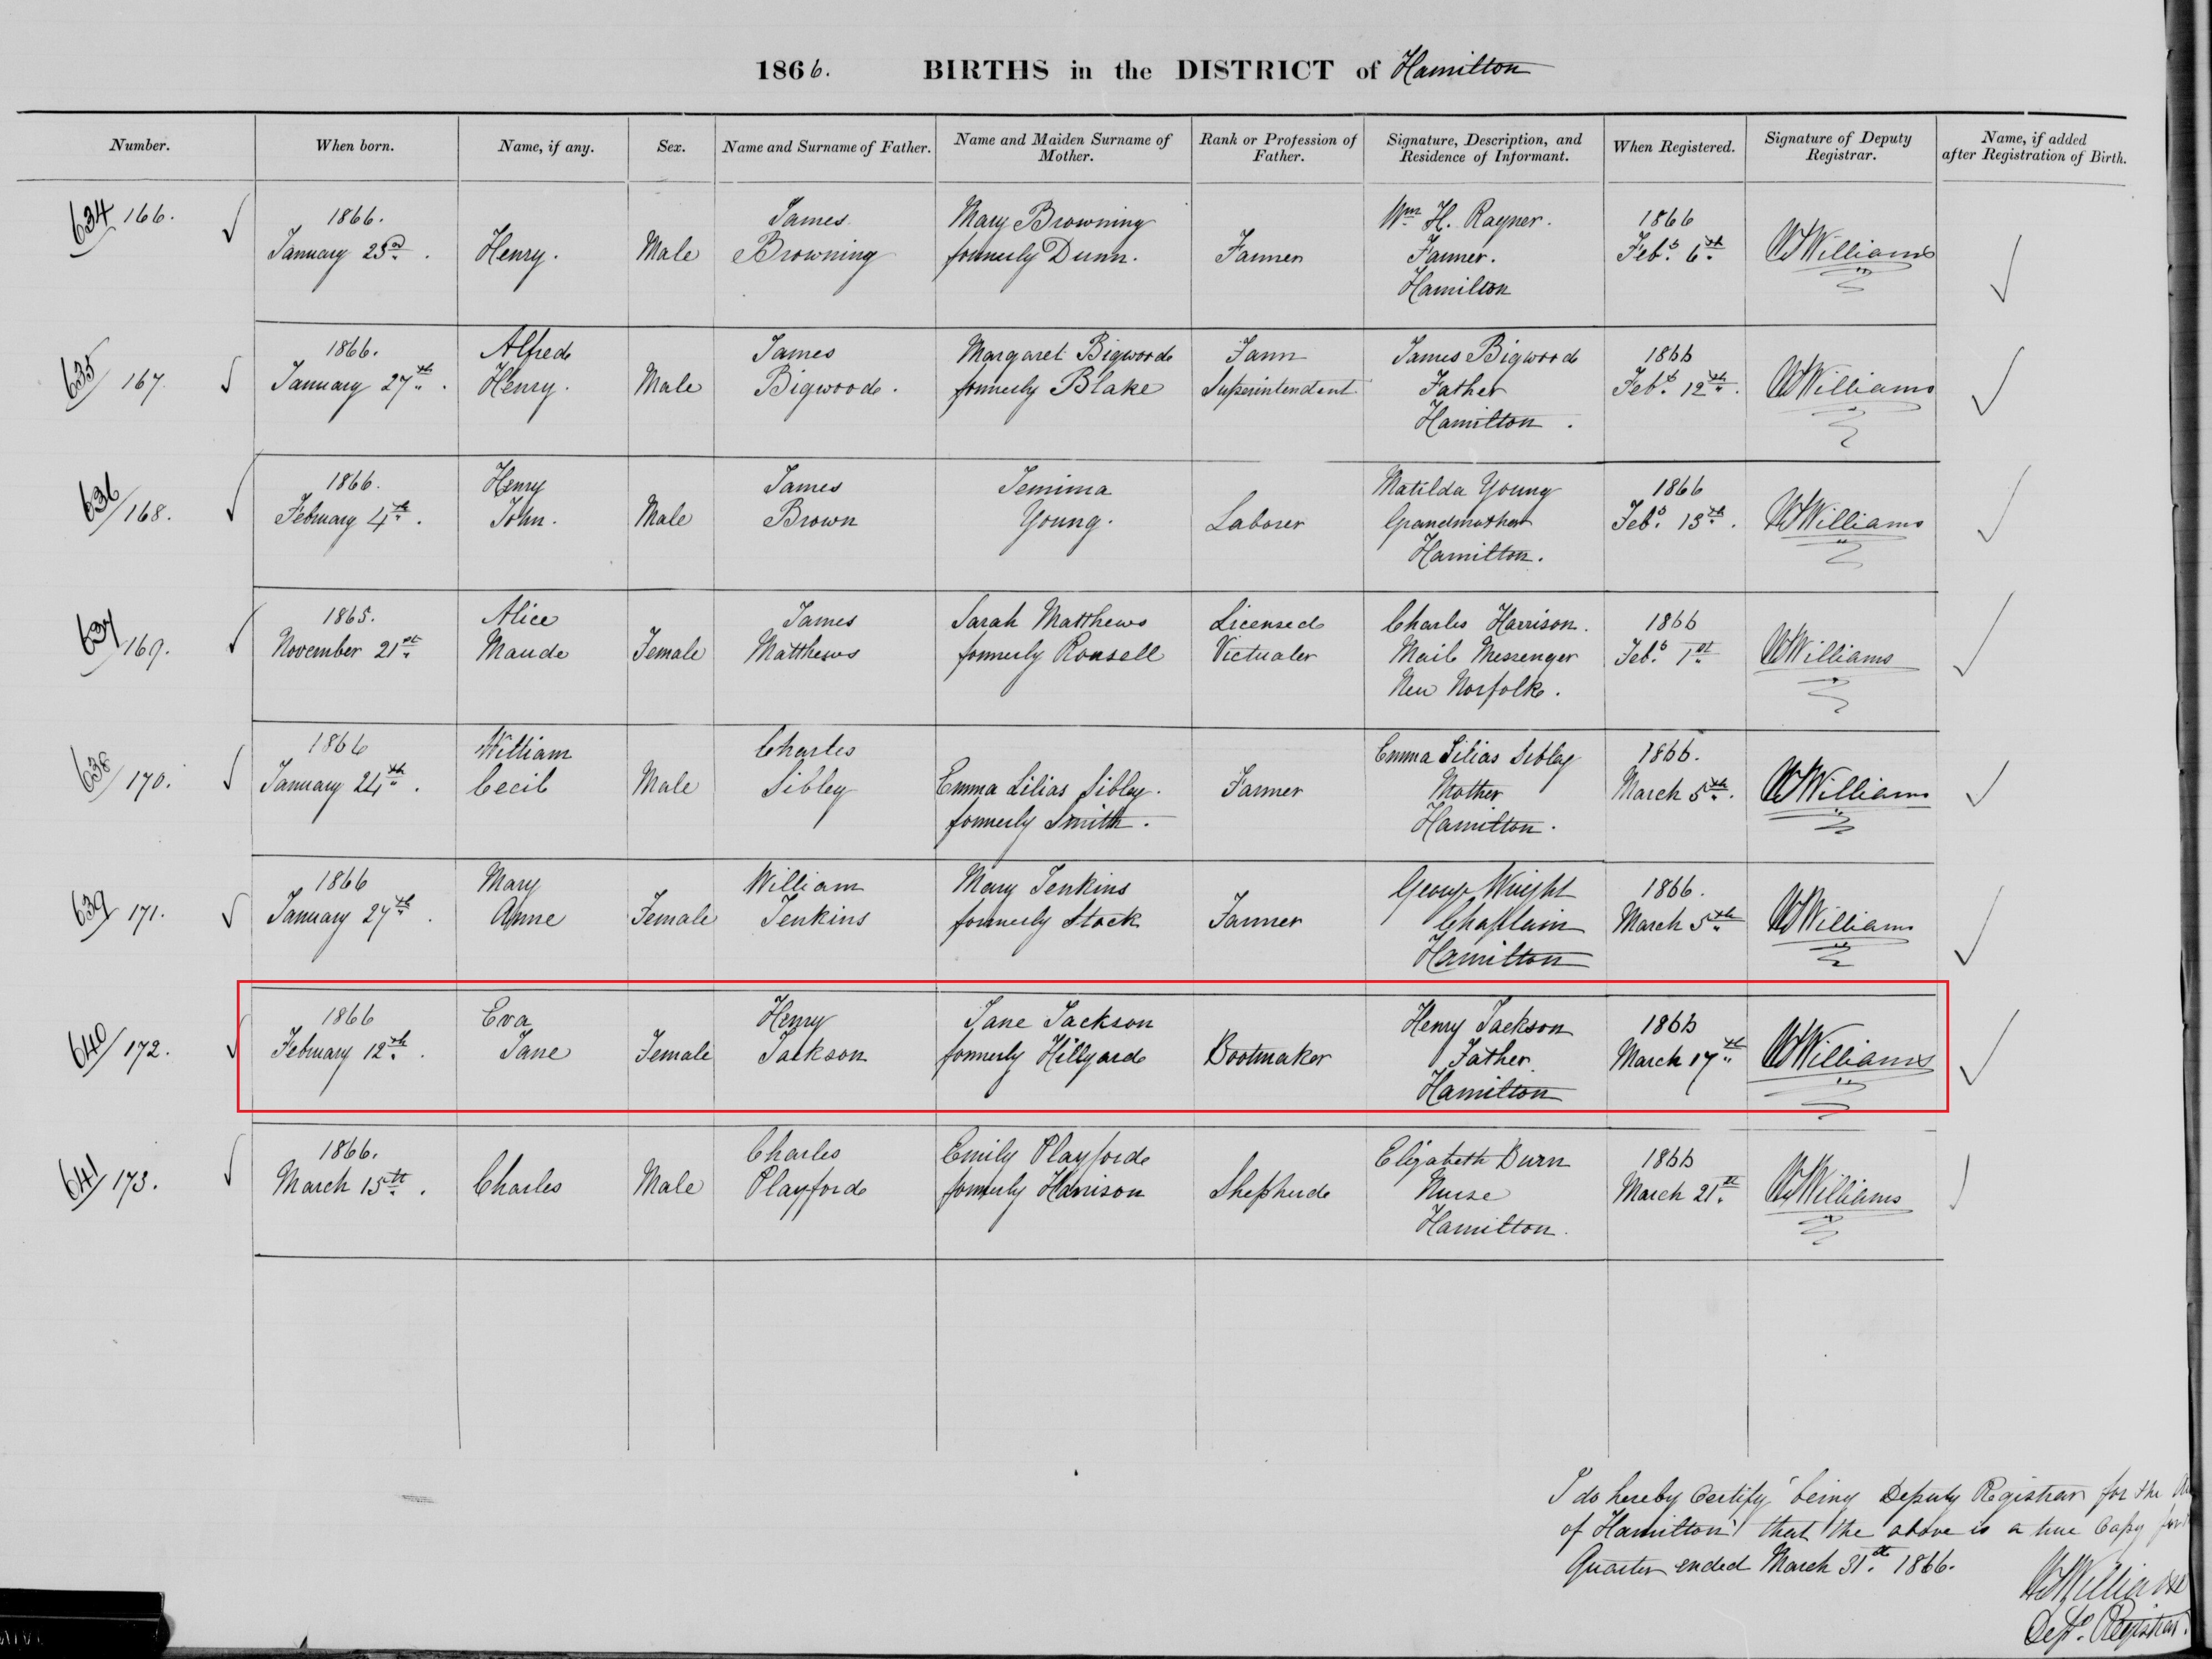 1866. BIRTHS in the DISTRICT of Hamilton
Number. When born. Name, if any. Sex. Name and Surname of Father. Name and Maiden Surname of Mother. Rank or Profession of Father. Signature, Description, and Residence of Informant. When Registered. Signature of Deputy Registrar. Name, if added after Registration of Birth.
634 166. 1866. James Mary Browning Wm H. Rayner. 1866
January 23rd. Henry. Male Browning formerly Dunn. Farmer Farmer. Feby. 6th W Williams
Hamilton
635 167. 1866. Alfred James Margaret Bigwood Farm James Bigwood 1866
January 27th. Henry. Male Bigwood. formerly Blake Superintendent Father Feby. 12th. W Williams
Hamilton.
636 168. 1866. Henry James Jemima Matilda Young 1866
February 4th. John. Male Brown Young. Laborer Grandmother Feby. 13th. W Williams
Hamilton.
637 169. 1865. Alice James Sarah Matthews Licensed Charles Harrison. 1866
November 21st. Maude Female Matthews formerly Rousell Victualer Mail Messenger Feby. 1st W Williams
New Norfolk.
638 170. 1866 William Charles Emma Lilias Sibley 1866.
January 24th. Cecil Male Sibley Emma Lilias Sibley. Farmer Mother March 5th. W Williams
formerly Smith. Hamilton.
639 171. 1866 Mary William Mary Jenkins George Wright 1866.
January 27th. Anne Female Jenkins formerly Stock Farmer Chaplain March 5th W Williams
Hamilton
640 172. 1866 Eva Henry Jane Jackson Henry Jackson 1866
February 12th. Jane Female Jackson formerly Hillyard Bootmaker Father. March 17th W Williams
Hamilton
641 173. 1866. Charles Emily Playford Elizabeth Burn 1866
March 15th. Charles Male Playford formerly Harrison Shepherd Nurse March 21st W Williams
Hamilton.
I do hereby Certify being Deputy Registrar for the
of Hamilton that the above is a true Copy for
Quarter ended March 31st. 1866.
W Williams
Depy. Registrar.